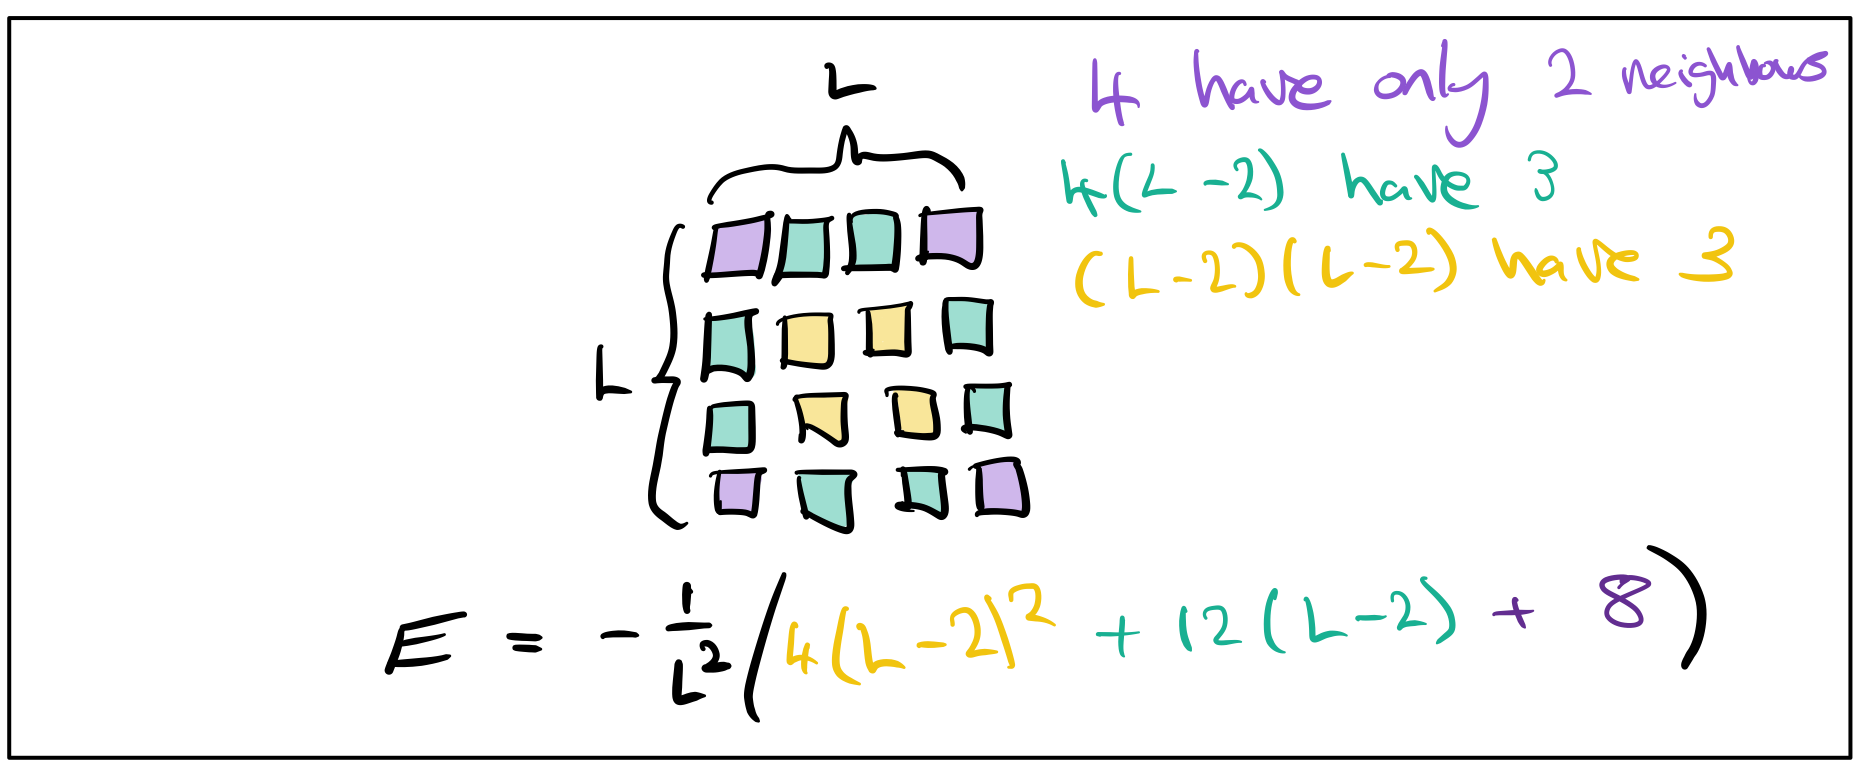 L
4 have only 2 neighbours
4(L-2) have 3
(L-2)(L-2) have 3
L
E = - 1/L² (4(L-2)² + 12(L-2) + 8)